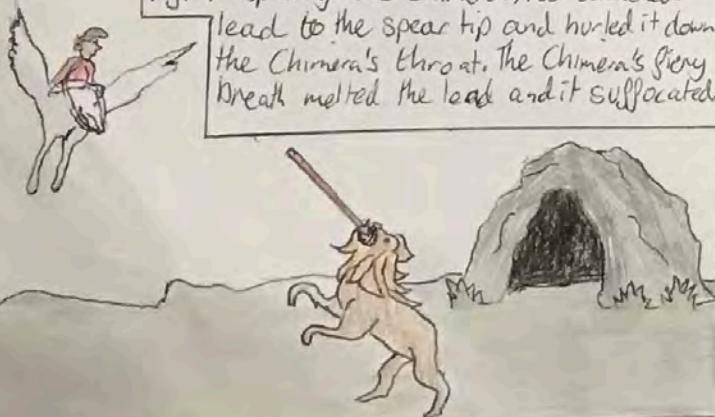 lead to the spear tip and hurled it down
the Chimera's throat. The Chimera's fiery
breath melted the lead and it suffocated